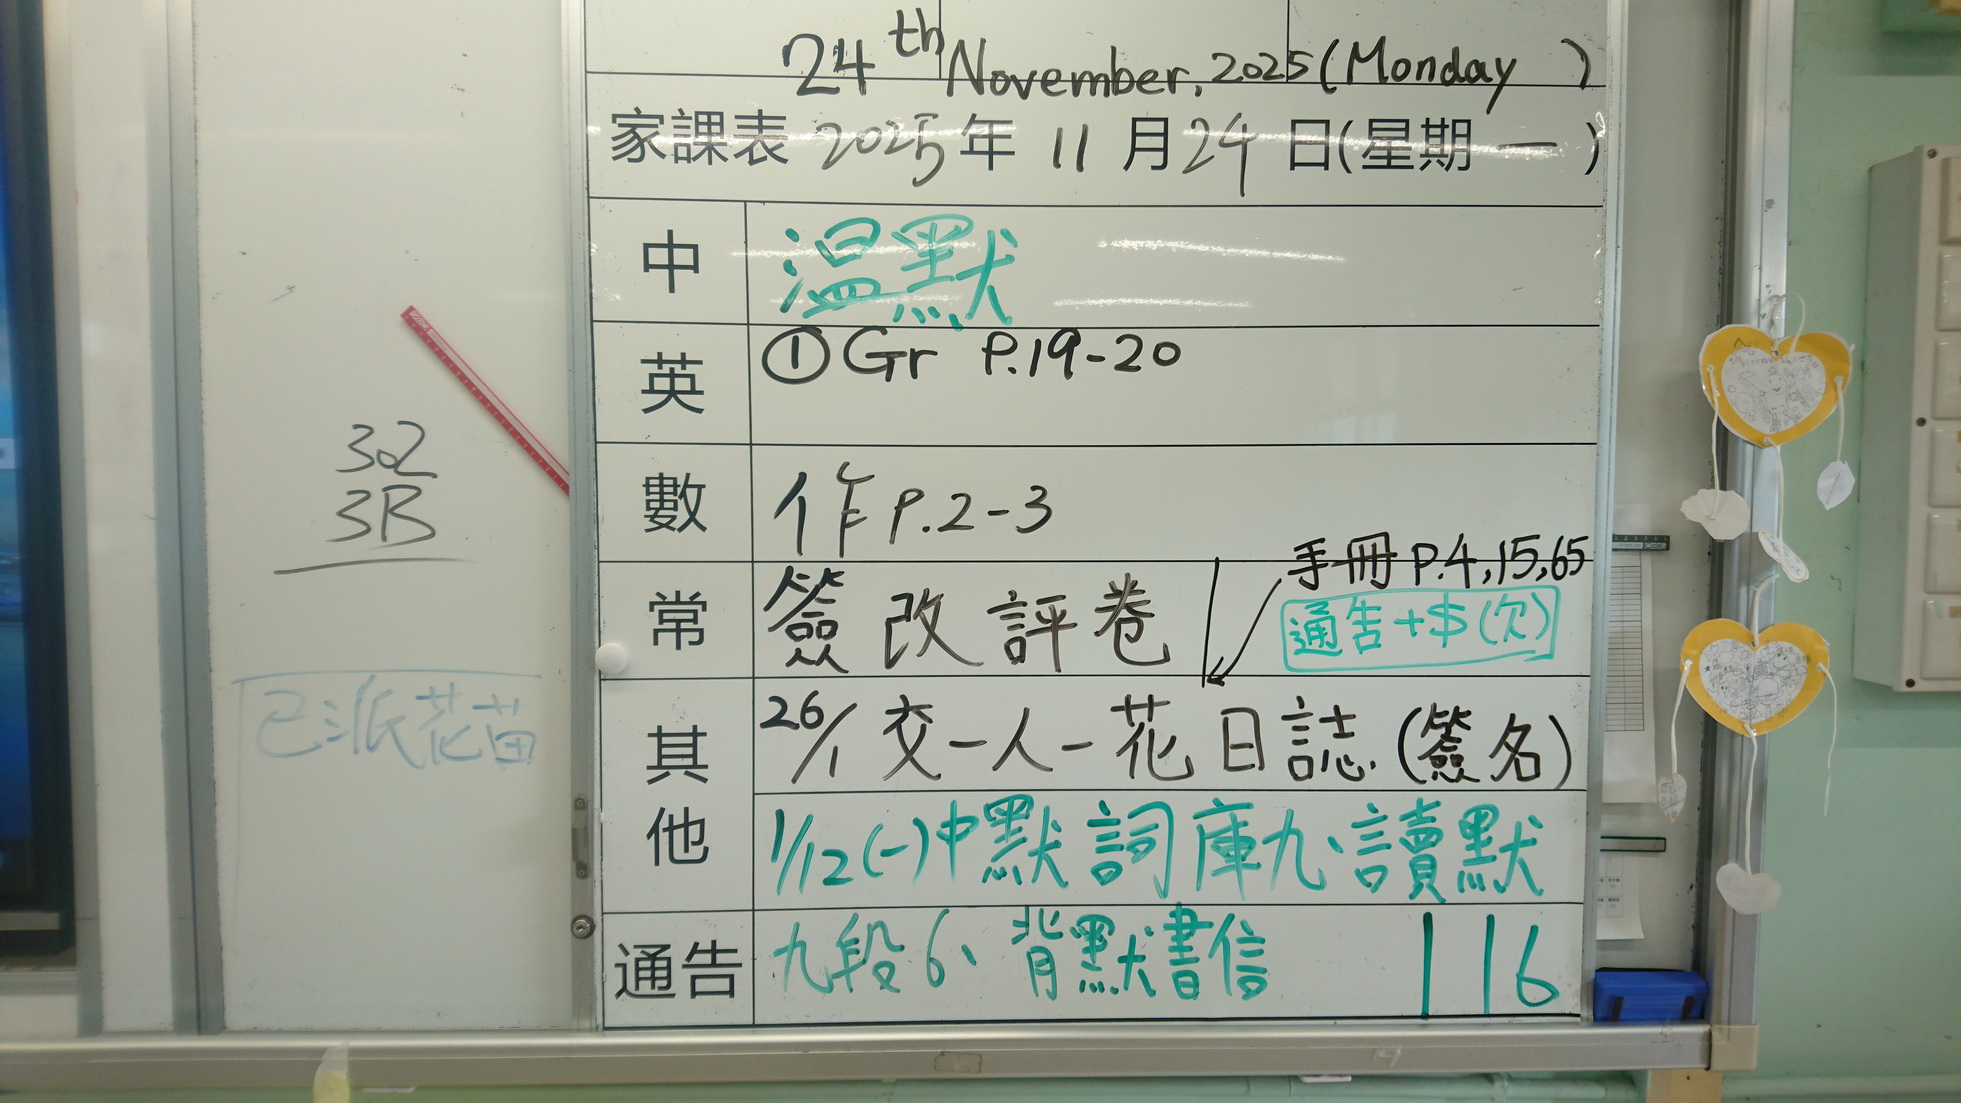 24th November, 2025 (Monday )
家課表 2025年 11 月 24 日(星期 一 )
中 溫默
英 ① Gr P.19-20
數 作 P.2-3
常 簽改評卷
手冊 P.4,15,65
通告+$(欠)
其他 26/1 交一人一花日誌(簽名)
1/12(一)中默詞庫九、讀默
通告 九段6、背默書信 116
302
3B
已派花苗